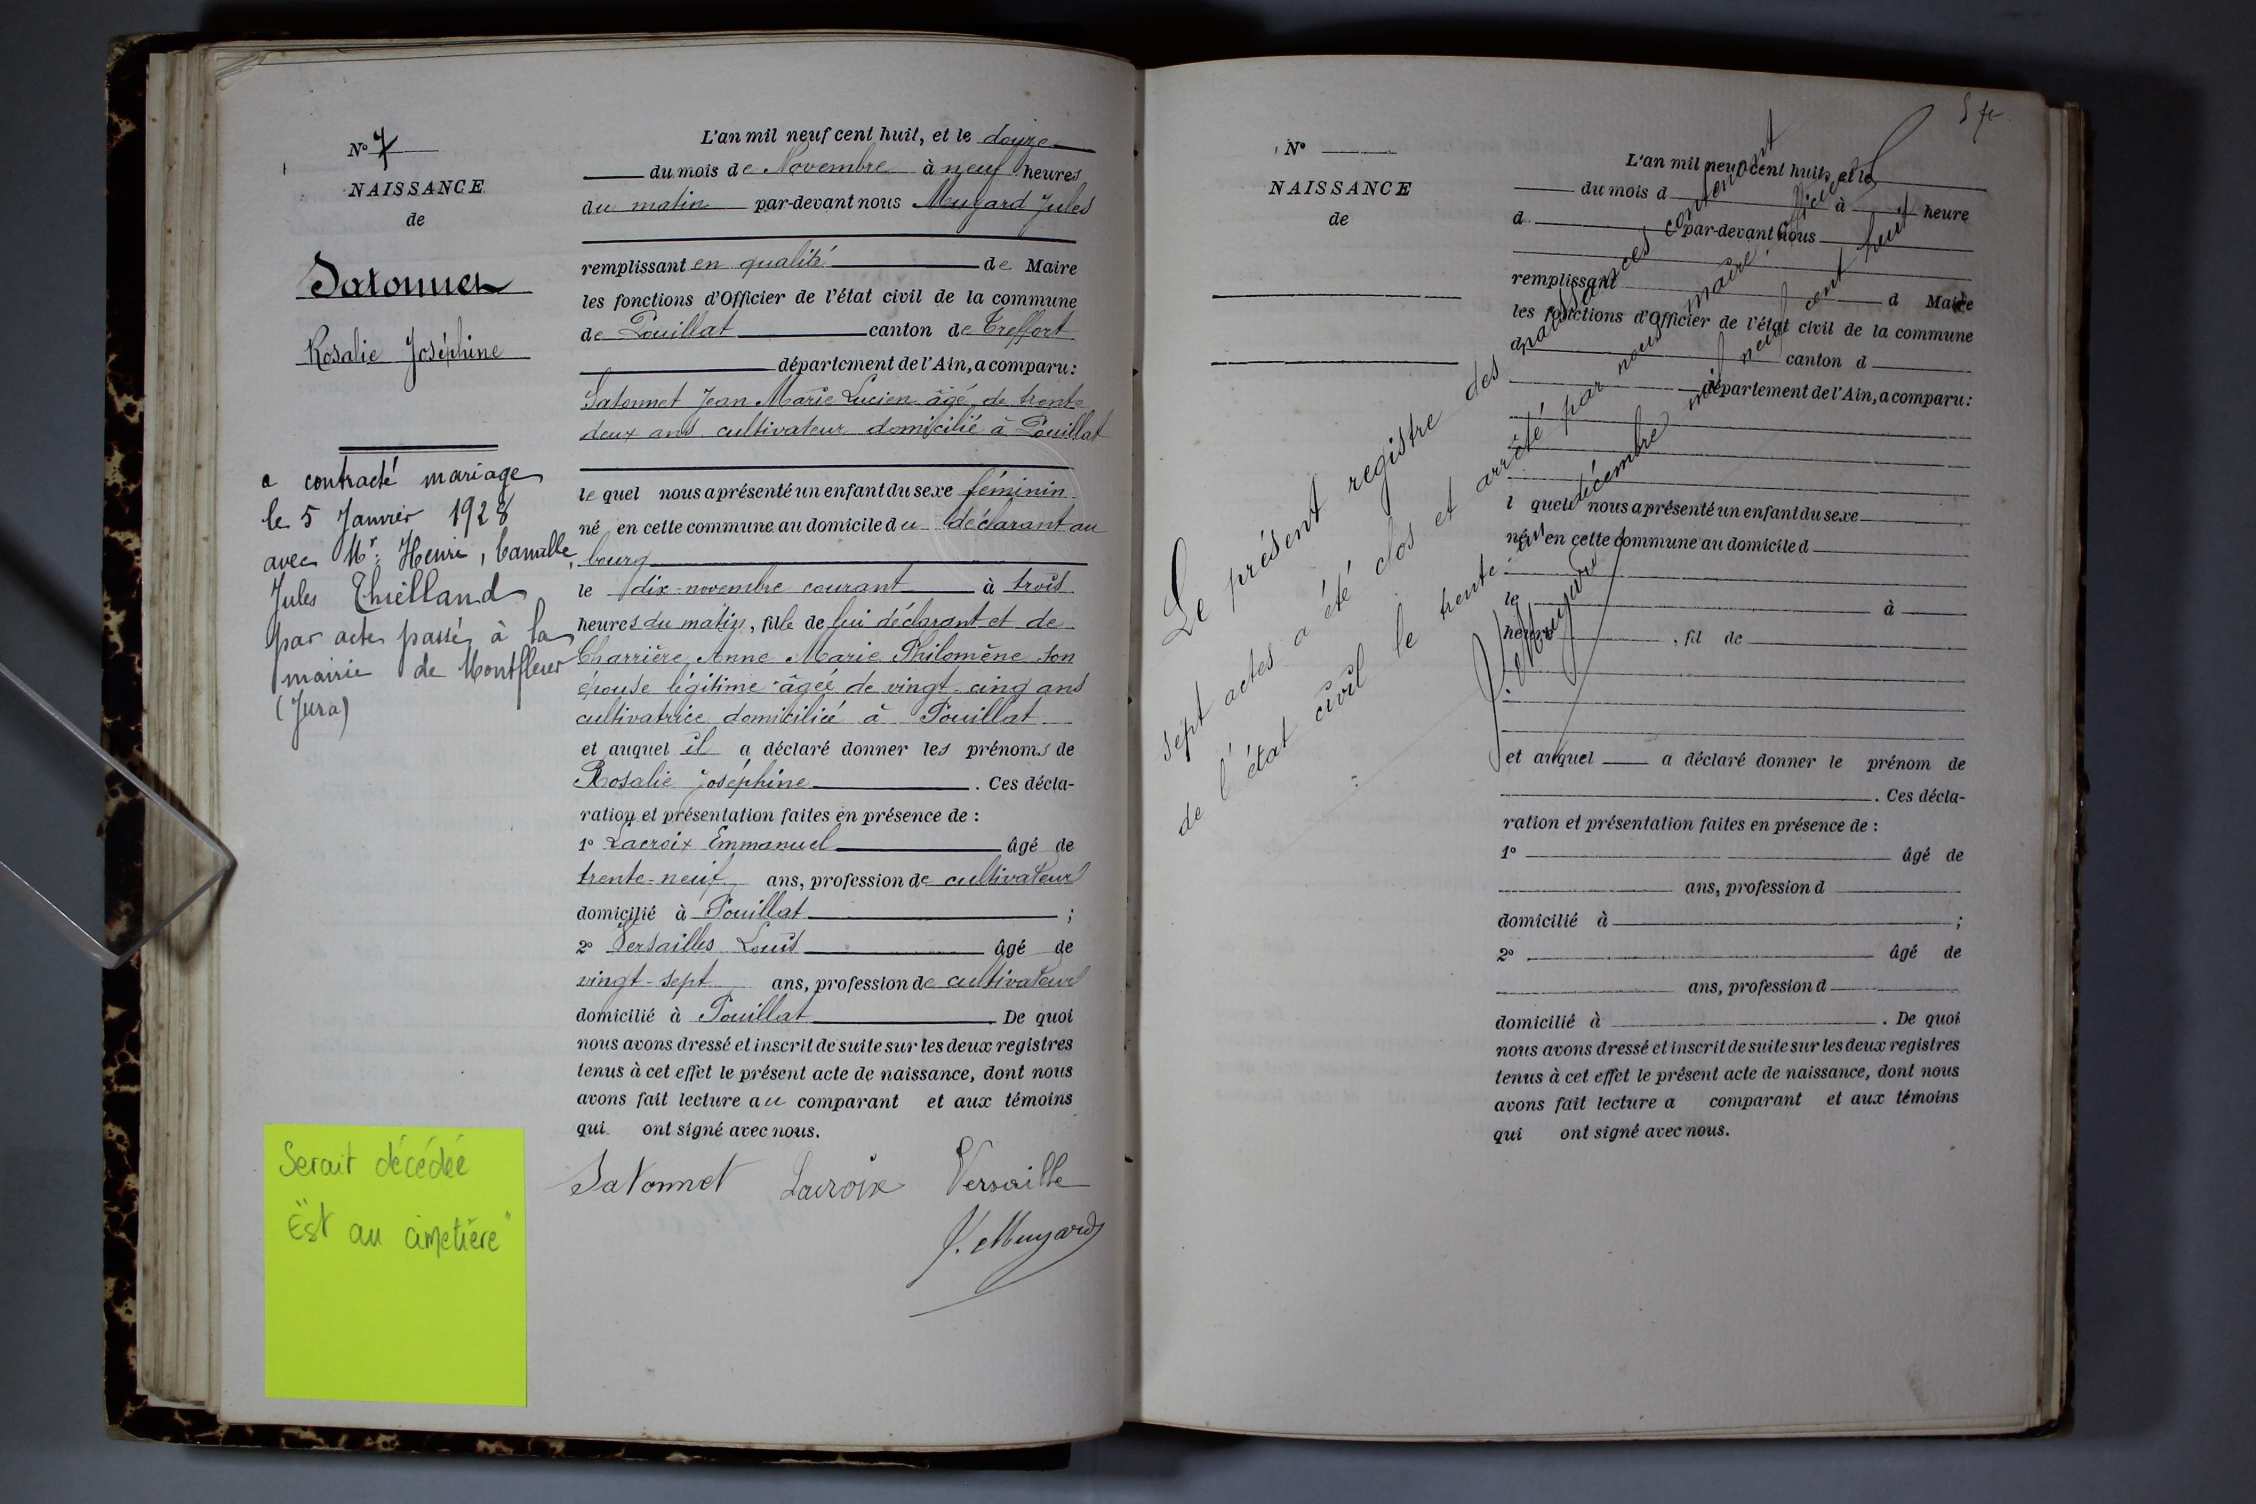 N° 7
NAISSANCE
de
Satonnet
Rosalie Joséphine
a contracté mariage
le 5 Janvier 1928
avec Mr: Henri, Camille,
Jules Thielland
par acte passé à la
mairie de Montfleur
(Jura)
Serait décédée
"Est au cimetière"
L'an mil neuf cent huit, et le douze
du mois de Novembre à neuf heures
du matin par-devant nous Muyard Jules
remplissant en qualité de Maire
les fonctions d'Officier de l'état civil de la commune
de Pouillat canton de Treffort
département de l'Ain, a comparu:
Satonnet Jean Marie Lucien âgé de trente
deux ans cultivateur domicilié à Pouillat
le quel nous a présenté un enfant du sexe féminin
né en cette commune au domicile du déclarant au
bourg
le dix novembre courant à trois
heures du matin, fille de lui déclarant et de
Charrière Anne Marie Philomène son
épouse légitime âgée de vingt-cinq ans
cultivatrice domiciliée à Pouillat
et auquel il a déclaré donner les prénoms de
Rosalie Joséphine. Ces décla-
ration et présentation faites en présence de :
1° Lacroix Emmanuel âgé de
trente-neuf ans, profession de cultivateur
domicilié à Pouillat ;
2° Versailles Louis âgé de
vingt-sept ans, profession de cultivateur
domicilié à Pouillat. De quoi
nous avons dressé et inscrit de suite sur les deux registres
tenus à cet effet le présent acte de naissance, dont nous
avons fait lecture au comparant et aux témoins
qui ont signé avec nous.
Satonnet Lacroix Versaille
J. Muyard
N°
NAISSANCE
de
L'an mil neuf cent huit, et le
du mois d à heure
d par-devant nous
remplissant d Maire
les fonctions d'Officier de l'état civil de la commune
d canton d
département de l'Ain, a comparu:
l quel nous a présenté un enfant du sexe
né en cette commune au domicile d
le à
heure , fil de
et auquel a déclaré donner le prénom de
. Ces décla-
ration et présentation faites en présence de :
1° âgé de
ans, profession d
domicilié à ;
2° âgé de
ans, profession d
domicilié à . De quoi
nous avons dressé et inscrit de suite sur les deux registres
tenus à cet effet le présent acte de naissance, dont nous
avons fait lecture a comparant et aux témoins
qui ont signé avec nous.
Le présent registre des naissances contenant
sept actes a été clos et arrêté par nous maire, officier
de l'état civil le trente-un décembre mil neuf cent huit
J. Muyard